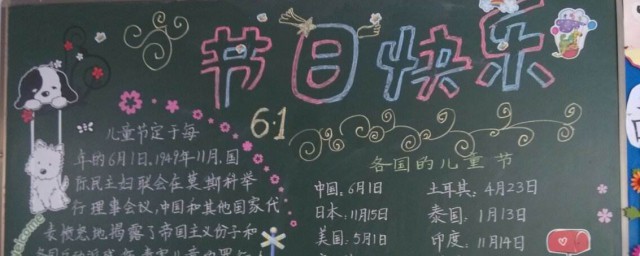 节日快乐
6.1
儿童节定于每
年的6月1日。1949年11月,国
际民主妇联会在莫斯科举
行理事会议,中国和其他国家代
表愤怒地揭露了帝国主义份子和
各国的儿童节
中国:6月1日
土耳其:4月23日
日本:11月15日
泰国:1月13日
美国:5月1日
印度:11月14日